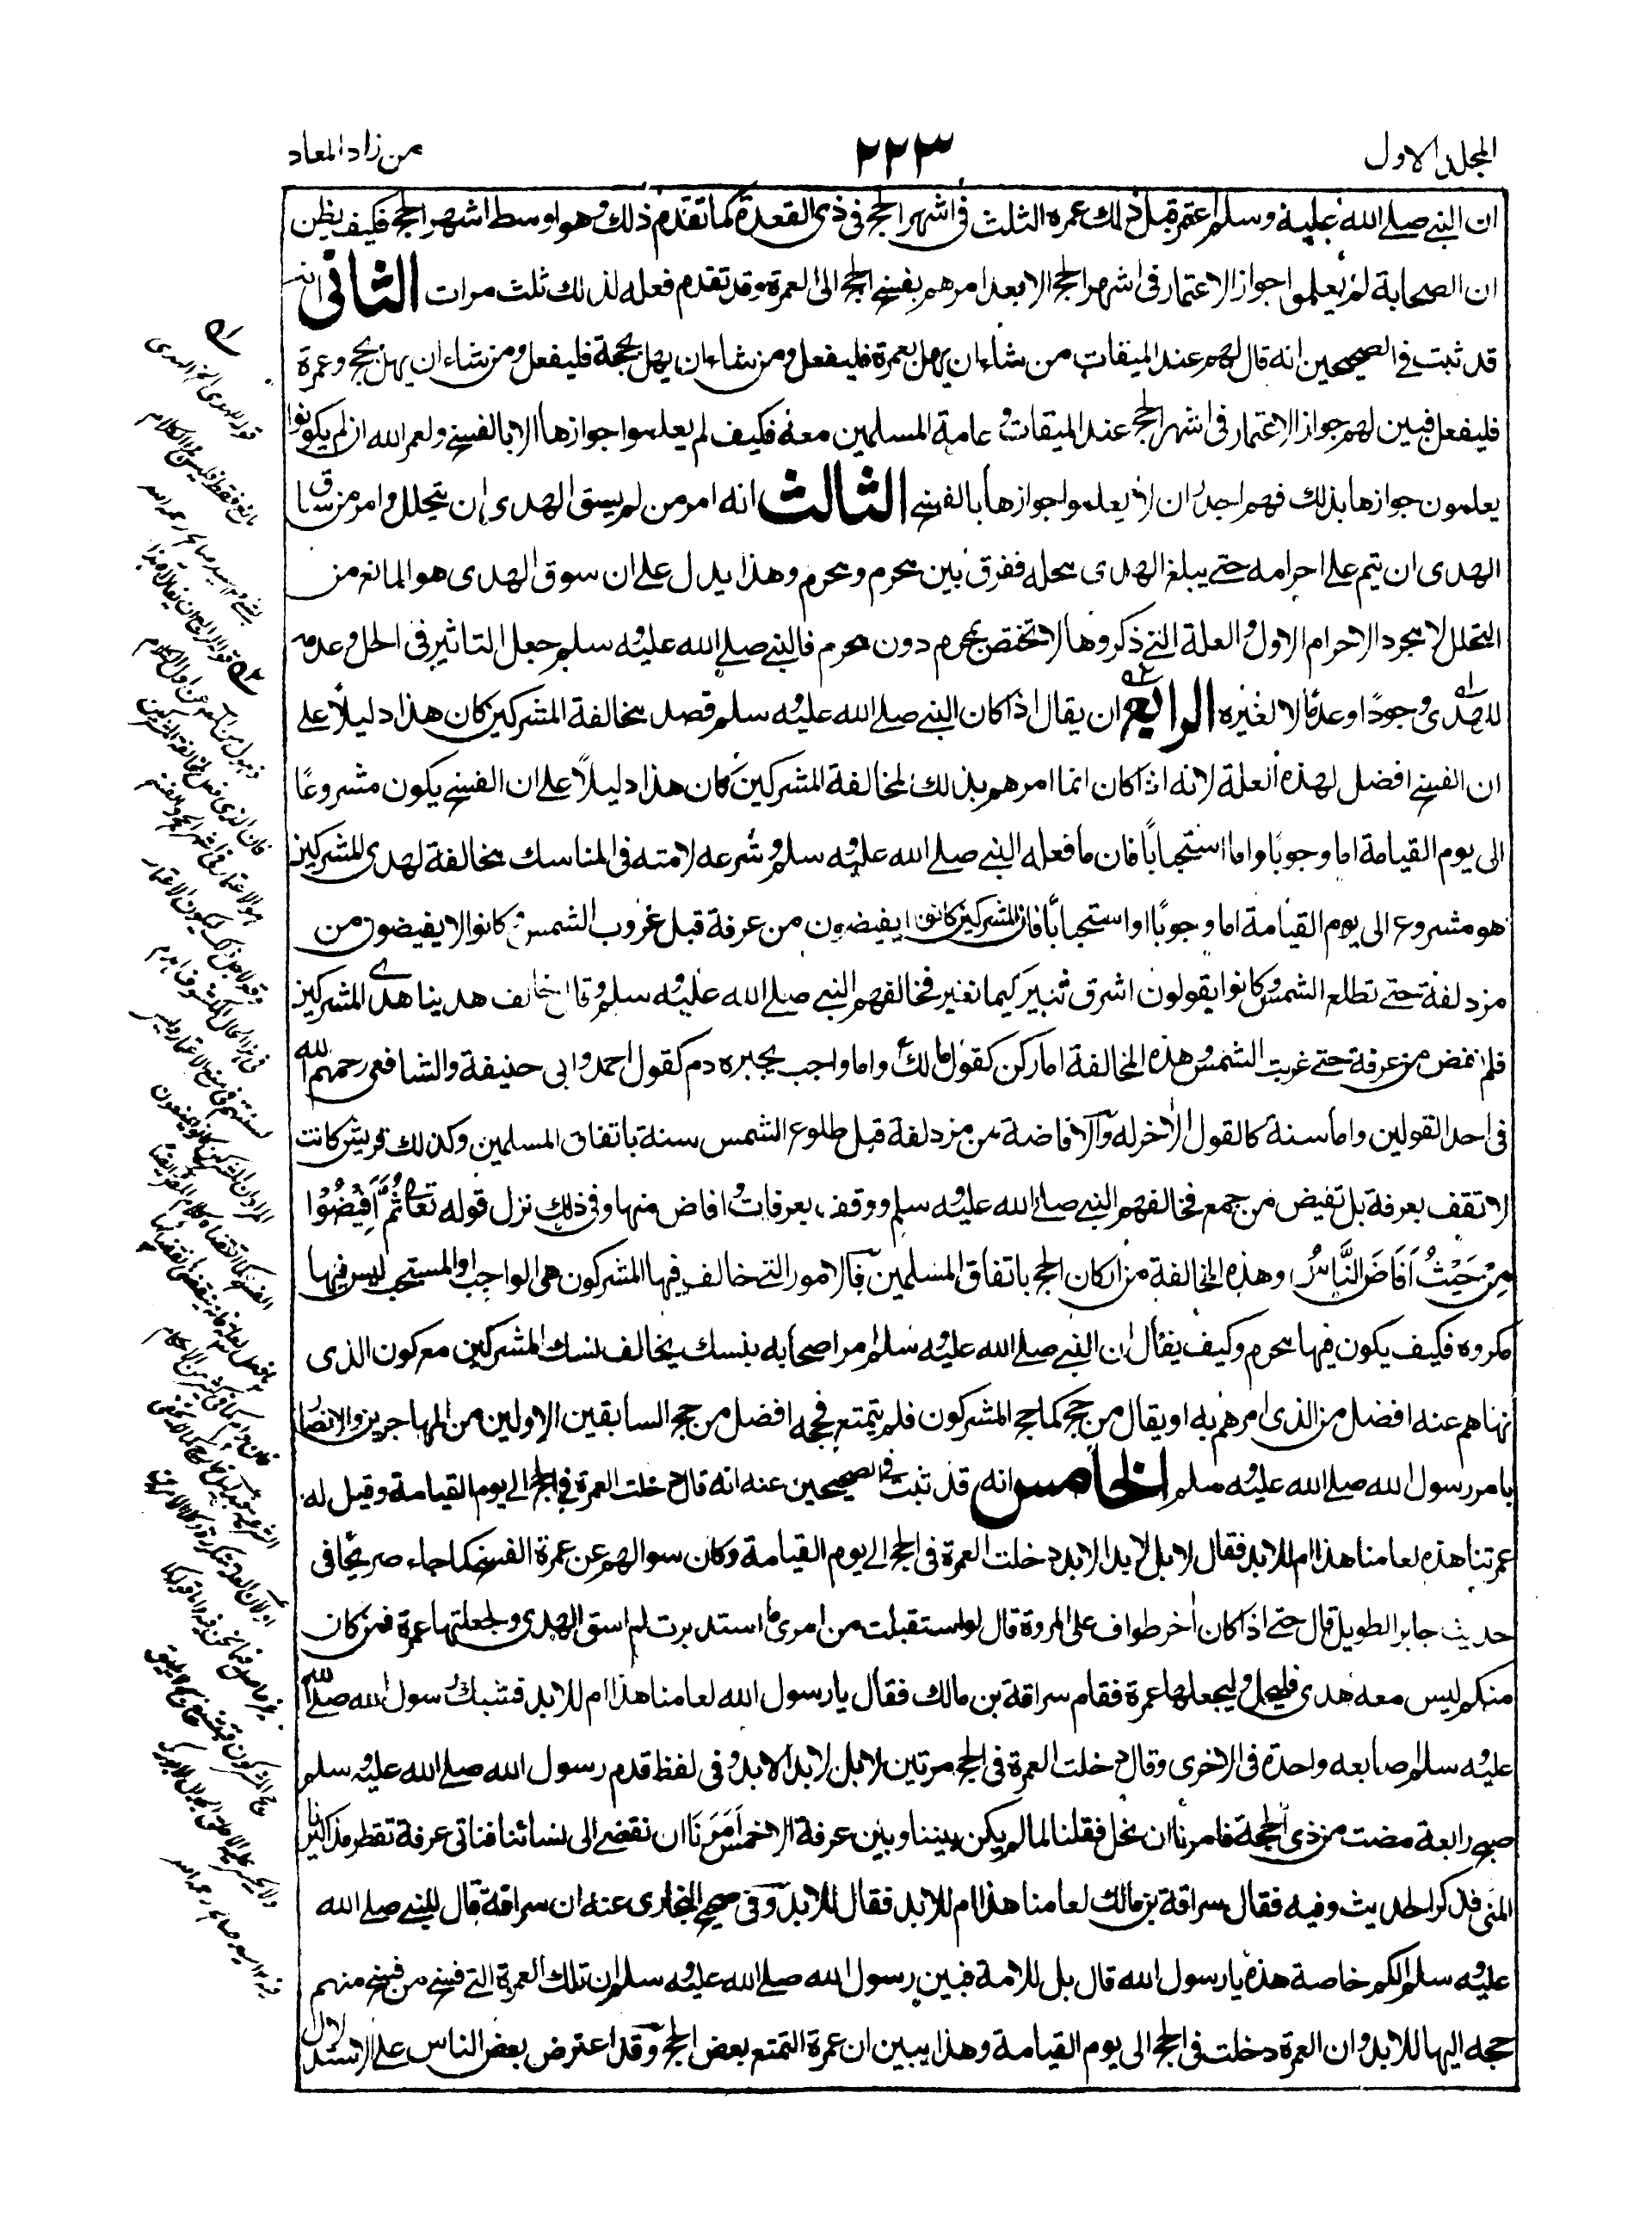 المجلد الاول
٢٢٣
من زاد المعاد
ان النبى صلے الله عليه وسلم اعتمر قبل ذلك عمره الثلث فى اشهر الحج فى ذى القعدة كما تقدم ذلك وهو اوسط اشهر الحج فكيف يظن
ان الصحابة لم يعلموا جواز الاعتمار فى اشهر الحج الا بعد امرهم بفسخ الحج الى العمرة وقد تقدم فعله لذلك ثلث مرات الثانى انه
قد ثبت فى الصحيحين انه قال لهم عند الميقات من شاء ان يهل بعمرة فليفعل ومن شاء ان يهل بحجة فليفعل ومن شاء ان يهل بحج وعمرة
فليفعل فبين لهم جواز الاعتمار فى اشهر الحج عند الميقات وعامة المسلمين معه فكيف لم يعلموا جوازها الا بالفسخ ولعمر الله ان لم يكونوا
يعلمون جوازها بذلك فهم اجدر ان لا يعلموا جوازها بالفسخ الثالث انه امر من لم يسق الهدى ان يتحلل وامر من ساق
الهدى ان يتم على احرامه حتے يبلغ الهدى محله ففرق بين محرم ومحرم وهذا يدل على ان سوق الهدى هو المانع من
التحلل لا مجرد الاحرام الاول والعلة التے ذكروها لا تختص بمحرم دون محرم فالنبى صلے الله عليه وسلم جعل التاثير فى الحل وعدمه
للهدى وجودًا وعدمًا لا لغيره الرابع ان يقال اذا كان النبى صلے الله عليه وسلم قصد مخالفة المشركين كان هذا دليلًا على
ان الفسخ افضل لهذه العلة لانه اذا كان انما امرهم بذلك لمخالفة المشركين كان هذا دليلًا على ان الفسخ يكون مشروعًا
الى يوم القيامة اما وجوبًا واما استحبابًا فان ما فعله النبى صلے الله عليه وسلم وشرعه لامته فى المناسك مخالفة لهدى المشركين
هو مشروع الى يوم القيامة اما وجوبًا او استحبابًا فان المشركين كانوا يفيضون من عرفة قبل غروب الشمس وكانوا لا يفيضون من
مزدلفة حتے تطلع الشمس وكانوا يقولون اشرق ثبير كيما نغير فخالفهم النبى صلے الله عليه وسلم وقال خالف هدينا هدى المشركين
فلم نفض من عرفة حتے غربت الشمس وهذه المخالفة اما ركن كقول مالك واما واجب يجبره دم كقول احمد وابى حنيفة والشافعى رحمهم الله
فى احد القولين واما سنة كالقول الاخر له والافاضة من مزدلفة قبل طلوع الشمس سنة باتفاق المسلمين وكذلك قريش كانت
لا تقف بعرفة بل تفيض من جمع فخالفهم النبى صلے الله عليه وسلم ووقف بعرفات وافاض منها وفى ذلك نزل قوله تعالى ثُمَّ اَفِيْضُوْا
مِنْ حَيْثُ اَفَاضَ النَّاسُ وهذه المخالفة من اركان الحج باتفاق المسلمين فالامور التے خالف فيها المشركون هى الواجب او المستحب ليس فيها
مكروه فكيف يكون فيها محرم وكيف يقال ان النبى صلے الله عليه وسلم امر اصحابه بنسك يخالف نسك المشركين مع كون الذى
نهاهم عنه افضل من الذى امرهم به او يقال من حج كما حج المشركون فلم يتمتع فحجه افضل من حج السابقين الاولين من المهاجرين والانصار
بامر رسول الله صلے الله عليه وسلم الخامس انه قد ثبت فى الصحيحين عنه انه قال دخلت العمرة فى الحج الے يوم القيامة وقيل له
عمرتنا هذه لعامنا هذا ام للابد فقال لا بل لابد الابد دخلت العمرة فى الحج الے يوم القيامة وكان سوالهم عن عمرة الفسخ كما جاء صريحًا فى
حديث جابر الطويل قال حتے اذا كان اخر طواف على المروة قال لو استقبلت من امرى ما استدبرت لم اسق الهدى ولجعلتها عمرة فمن كان
منكم ليس معه هدى فليحل وليجعلها عمرة فقام سراقة بن مالك فقال يا رسول الله لعامنا هذا ام للابد فشبك رسول الله صلے الله
عليه وسلم اصابعه واحدة فى الاخرى وقال دخلت العمرة فى الحج مرتين لا بل لابد الابد وفى لفظ قدم رسول الله صلے الله عليه وسلم
صبح رابعة مضت من ذى الحجة فامرنا ان نحل فقلنا لما لم يكن بيننا وبين عرفة الا خمس اَمَرَنَا ان نفضے الى نسائنا فناتى عرفة تقطر مذاكيرنا
المنى فذكر الحديث وفيه فقال سراقة بن مالك لعامنا هذا ام للابد فقال للابد وفى صحيح البخارى عنه ان سراقة قال للنبى صلے الله
عليه وسلم الكم خاصة هذه يا رسول الله قال بل للامة فبين رسول الله صلے الله عليه وسلم ان تلك العمرة التے فسخ من فسخ منهم
حجه اليها للابد وان العمرة دخلت فى الحج الى يوم القيامة وهذا يبين ان عمرة التمتع بعض الحج وقد اعترض بعض الناس على الاستدلال